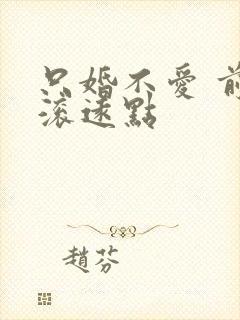 只婚不愛 前
滾遠點
趙芬